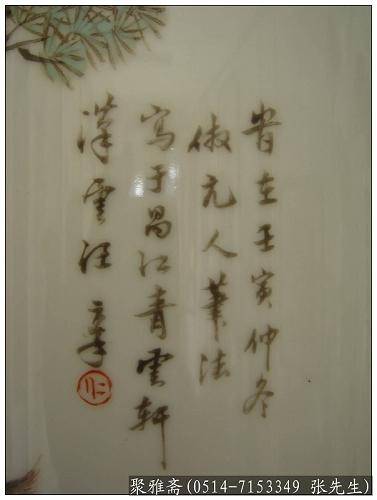 峕在壬寅仲冬
倣元人筆法
寫于昌江青雲軒
漢雲汪章
聚雅斋(0514-7153349 张先生)